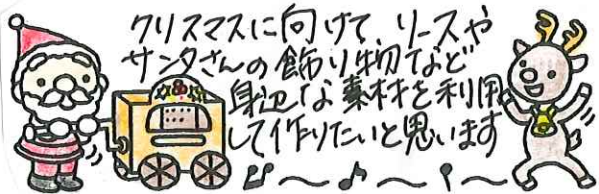 クリスマスに向けて、リースや
サンタさんの飾り物など
身辺な素材を利用
して作りたいと思います